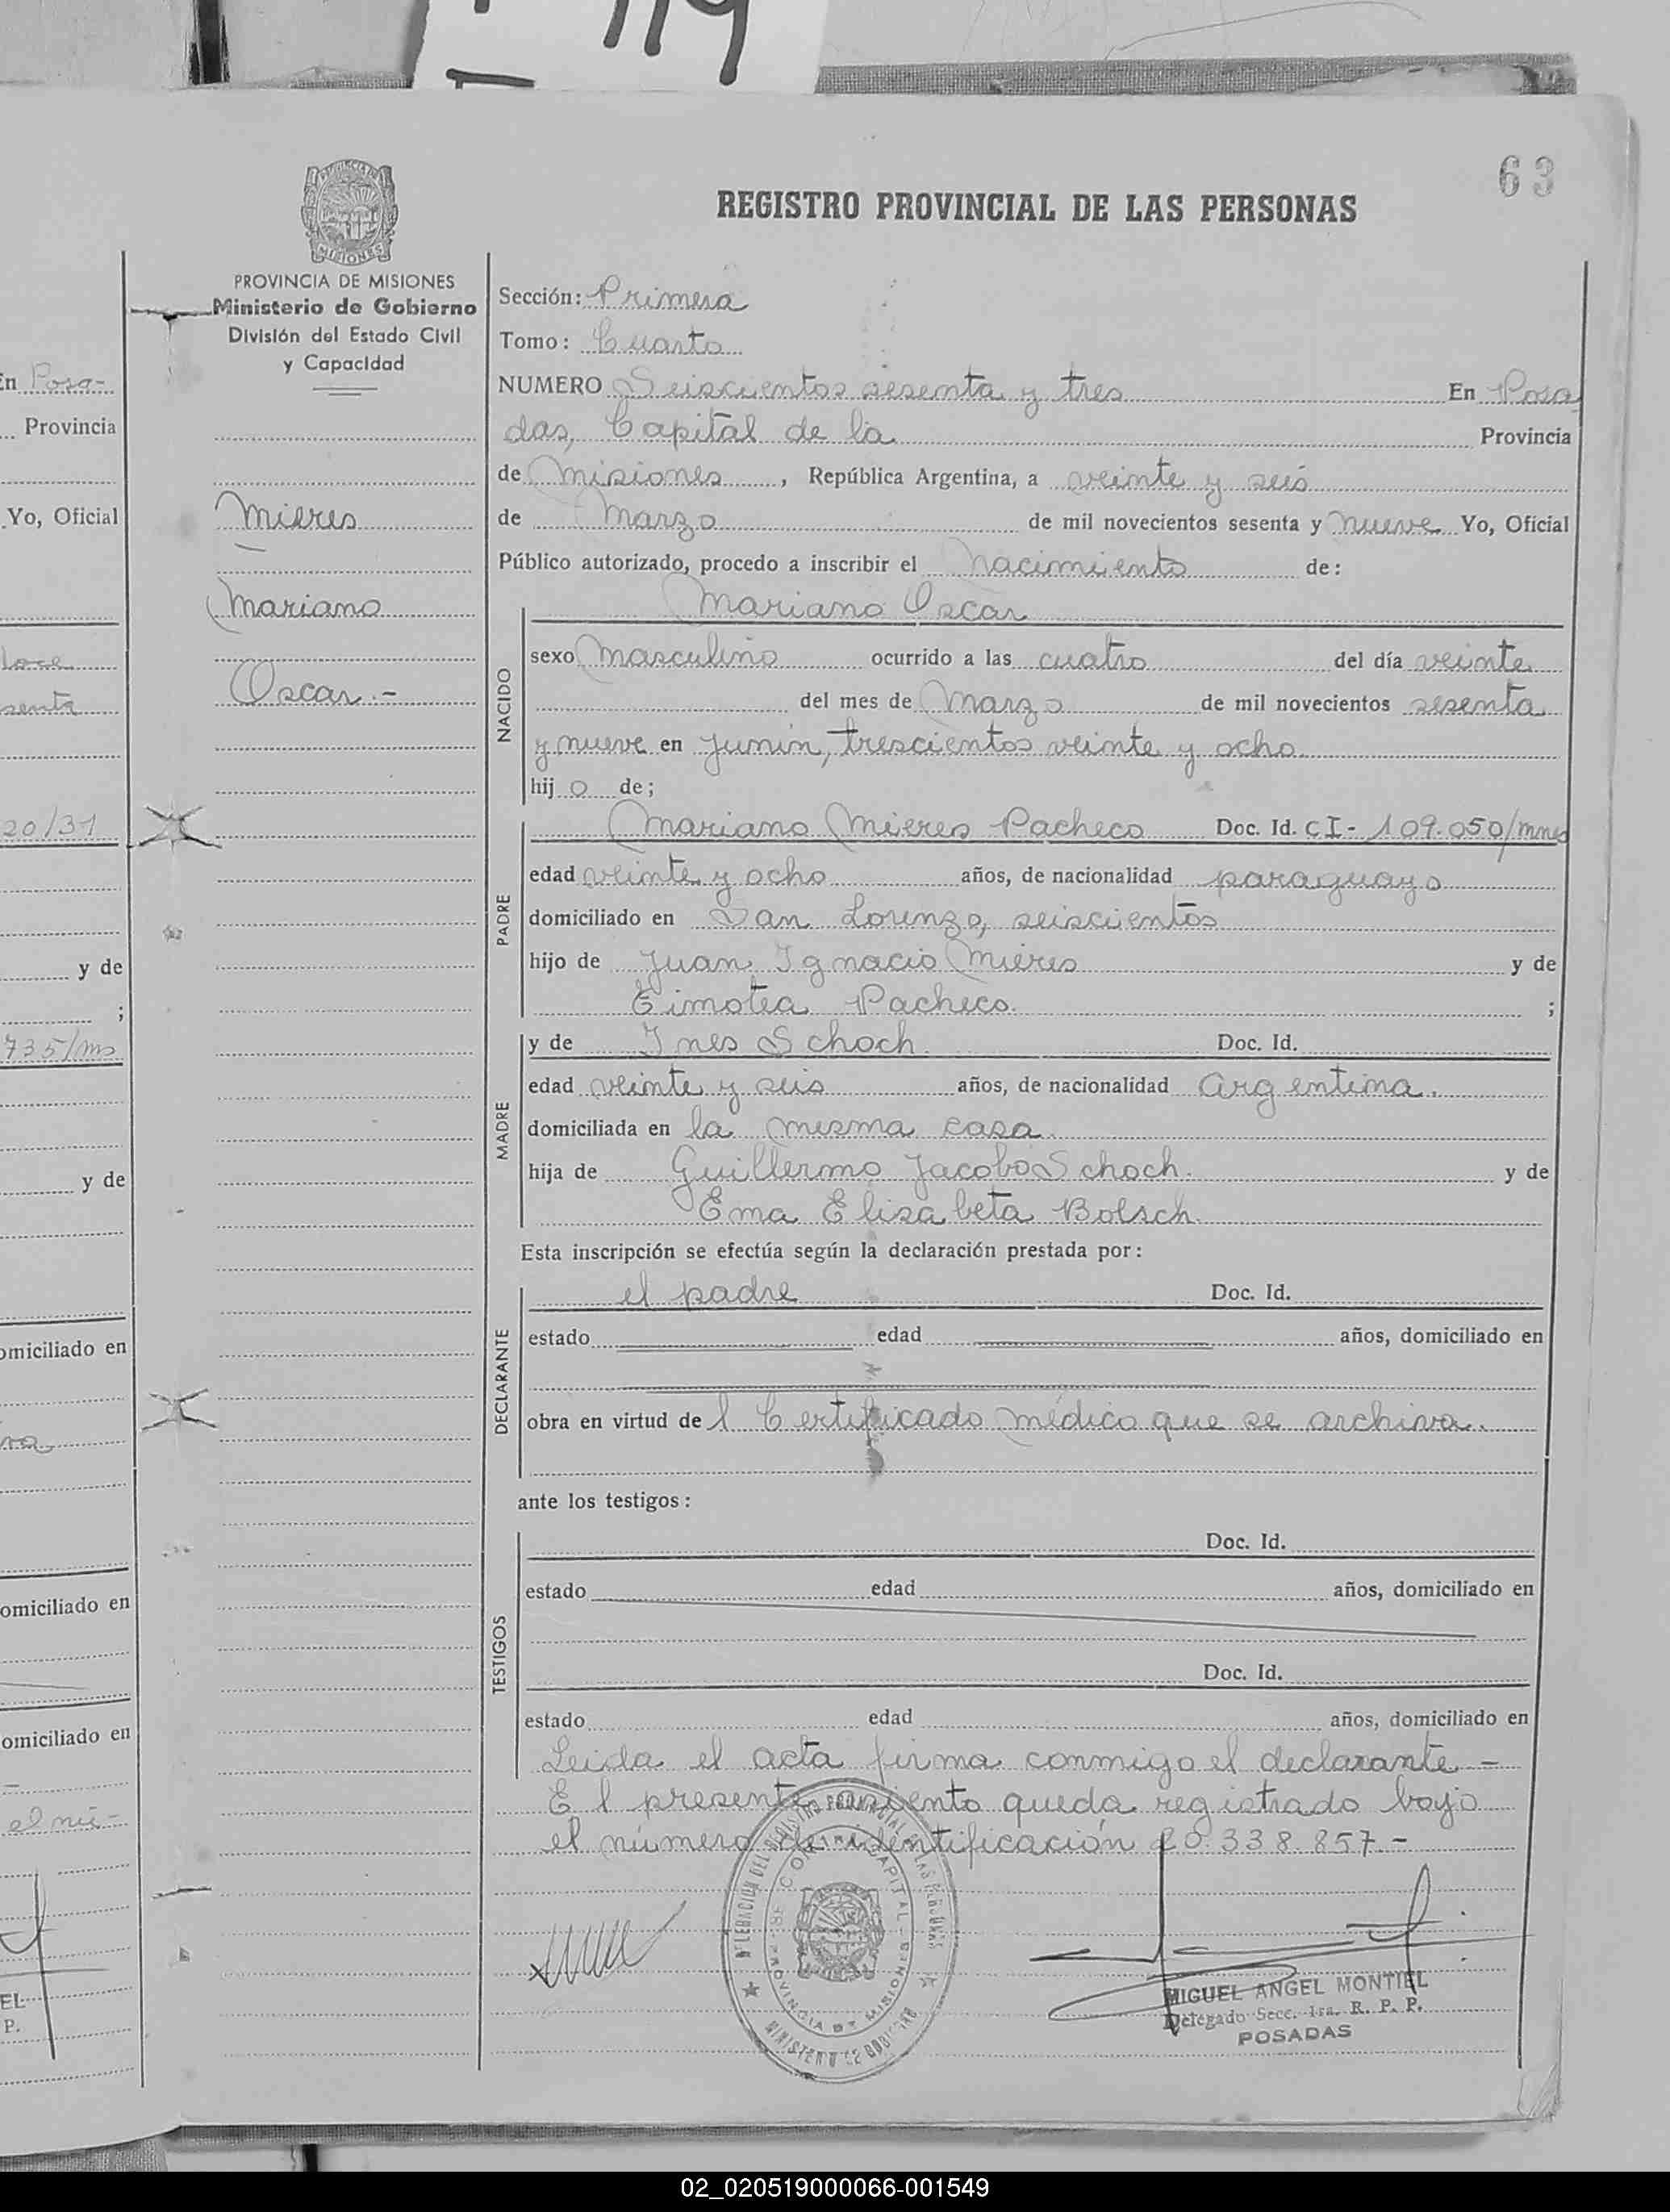 119
63
REGISTRO PROVINCIAL DE LAS PERSONAS
PROVINCIA DE MISIONES
Ministerio de Gobierno
División del Estado Civil
y Capacidad
Mieres
Mariano
Oscar.-
Sección: Primera
Tomo: Cuarto
NUMERO Seiscientos sesenta y tres En Posa
das, Capital de la Provincia
de Misiones, República Argentina, a veinte y seis
de Marzo de mil novecientos sesenta y nueve Yo, Oficial
Público autorizado, procedo a inscribir el nacimiento de:
Mariano Oscar
NACIDO
sexo Masculino ocurrido a las cuatro del día veinte
del mes de Marzo de mil novecientos sesenta
y nueve en Junín, trescientos veinte y ocho.
hijo de;
PADRE
Mariano Mieres Pacheco Doc. Id. CI- 109.050/mnes
edad veinte y ocho años, de nacionalidad paraguayo
domiciliado en San Lorenzo, seiscientos
hijo de Juan Ignacio Mieres y de
Timotea Pacheco. ;
MADRE
y de Ines Schoch. Doc. Id.
edad veinte y seis años, de nacionalidad Argentina.
domiciliada en la misma casa.
hija de Guillermo Jacobo Schoch. y de
Ema Elisabeta Bolsch.
Esta inscripción se efectúa según la declaración prestada por:
DECLARANTE
el padre Doc. Id.
estado edad años, domiciliado en
obra en virtud del Certificado médico que se archiva.
ante los testigos:
TESTIGOS
Doc. Id.
estado edad años, domiciliado en
Doc. Id.
estado edad años, domiciliado en
Leida el acta firma conmigo el declarante -
El presente asiento queda registrado bajo
el número de identificación 20.338.857.-
DELEGACION DEL REGISTRO PROVINCIAL DE LAS PERSONAS
SECCION 1ra. CAPITAL
PROVINCIA DE MISIONES
MINISTERIO DE GOBIERNO
MIGUEL ANGEL MONTIEL
Delegado Secc. 1ra. R. P. P.
POSADAS
En Posa-
Provincia
Yo, Oficial
senta
20/31
y de
;
735/ms
y de
omiciliado en
omiciliado en
omiciliado en
el nú-
EL
P.
02_020519000066-001549